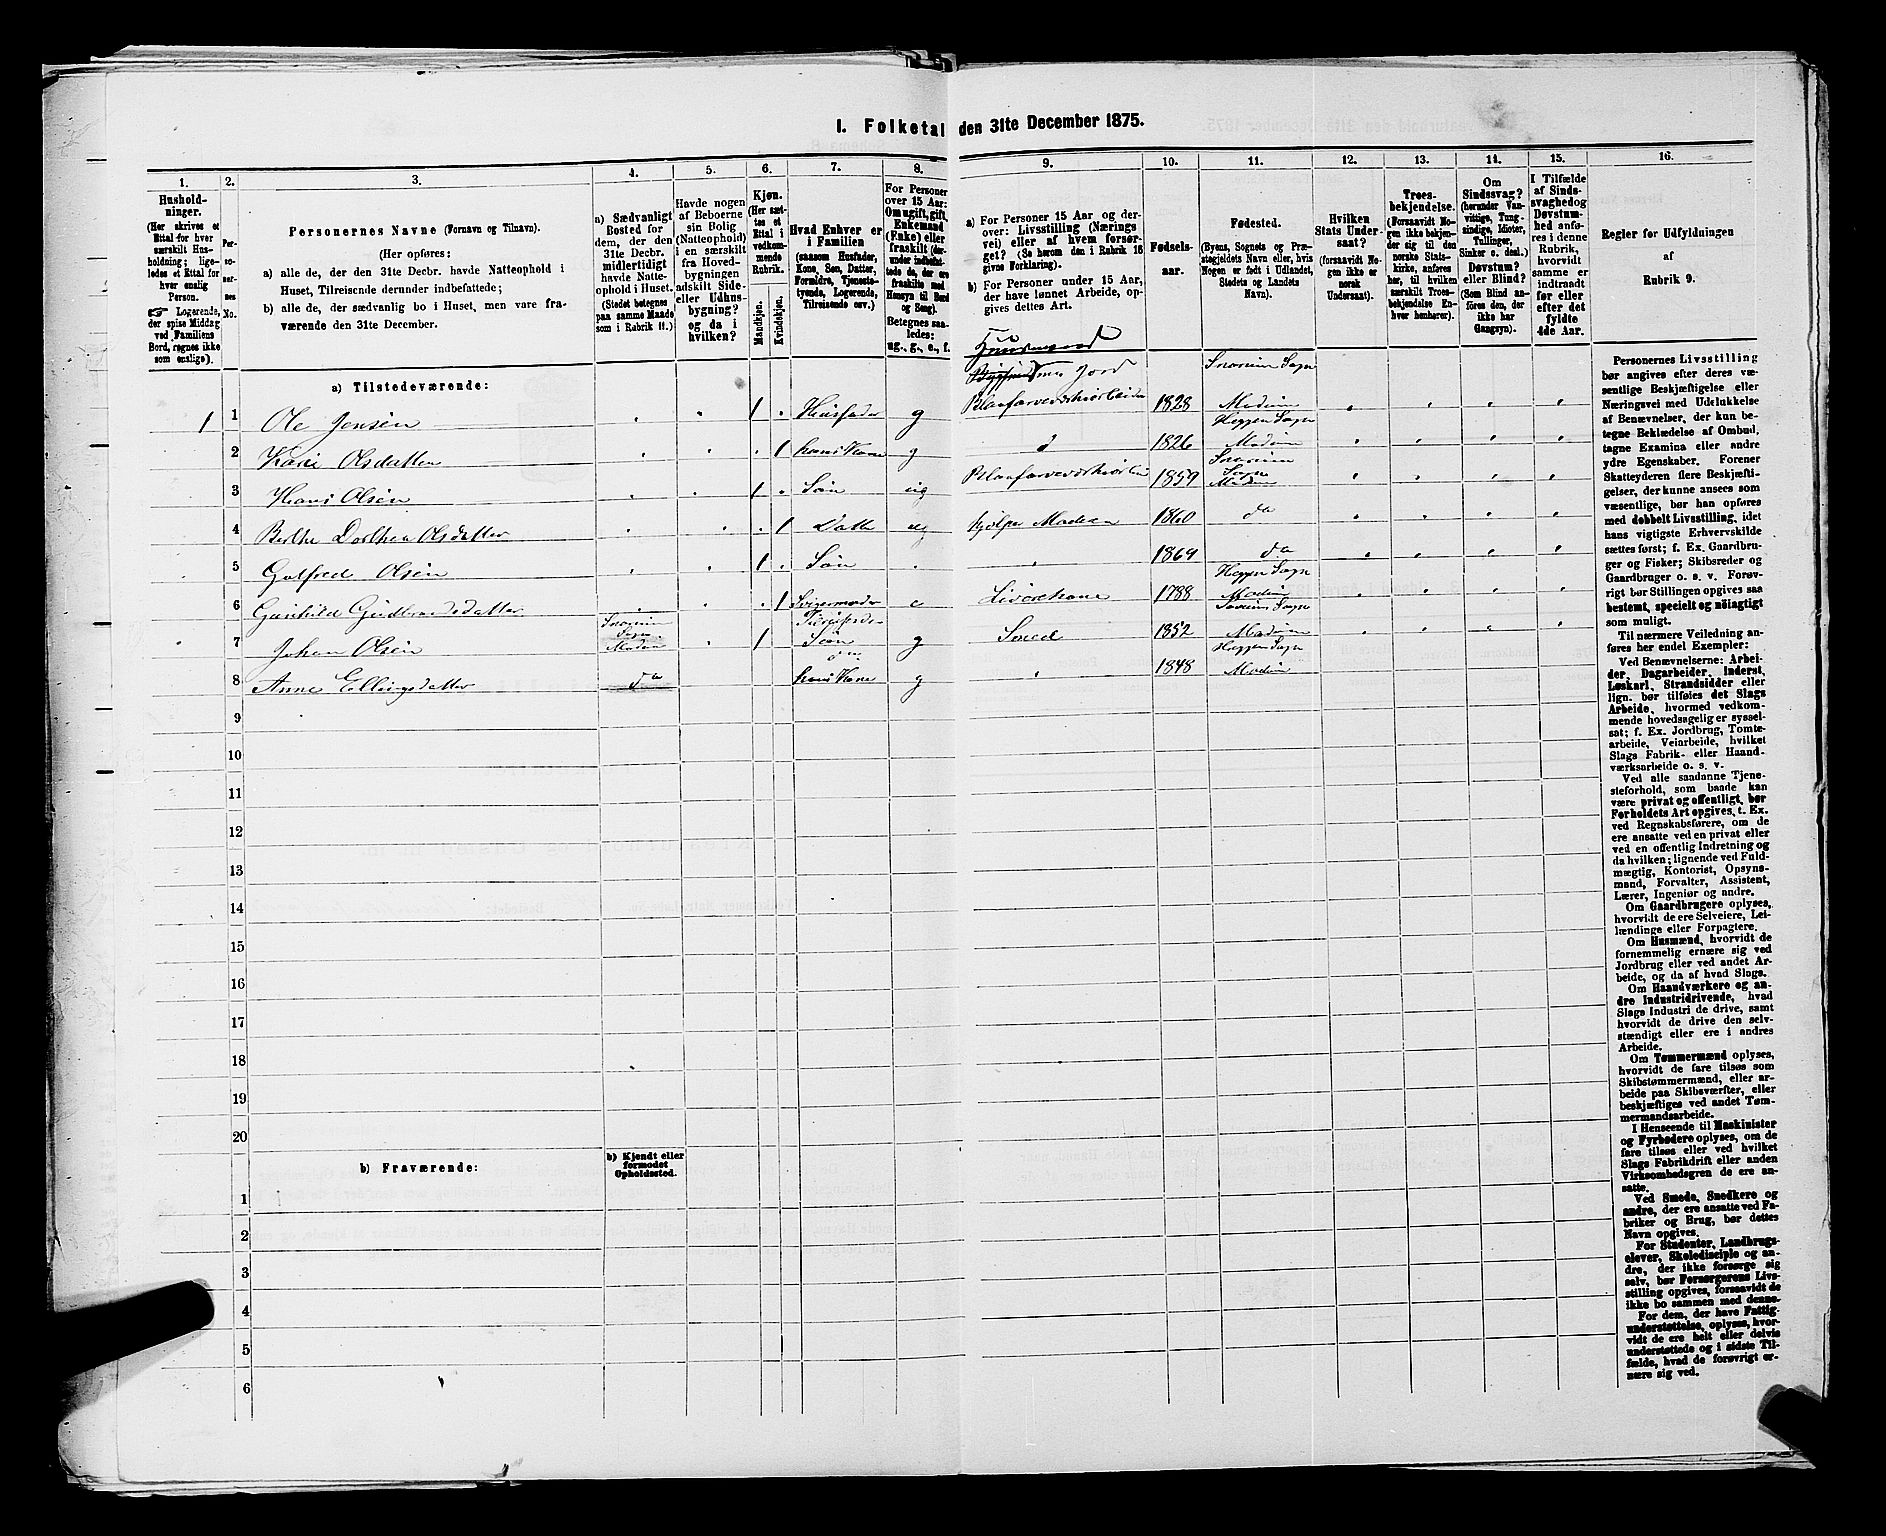 I. Folketal den 31te December 1875.
1. 2. 3. 4. 5. 6. 7. 8. 9. 10. 11. 12. 13. 14. 15. 16.
Husholdninger.
(Her skrives et
Ettal for hver
særskilt Husholdning; ligeledes et Ettal for
hver enslig
Person.
☞ Logerende,
der spise Middag
ved Familiens
Bord, regnes ikke
som enslige).
Personernes No.
Personernes Navne (Fornavn og Tilnavn).
(Her opføres:
a) alle de, der den 31te Decbr. havde Natteophold i
Huset, Tilreisende derunder indbefattede;
b) alle de, der sædvanlig bo i Huset, men vare fraværende den 31te December.
a) Sædvanligt
Bosted for
dem, der den
31te Decbr.
midlertidigt
havde Natteophold i Huset.
(Stedet betegnes
paa samme Maade
som i Rubrik 11.)
Havde nogen
af Beboerne
sin Bolig
(Natteophold)
i en særskilt
fra Hovedbygningen
adskilt Side-
eller Udhusbygning?
og da i
hvilken?
Kjøn.
(Her sættes et
Ettal i
vedkommende
Rubrik.
Mandkjøn.
Kvindekjøn.
Hvad Enhver er
i Familien
(saasom Husfader,
Kone, Søn, Datter,
Forældre, Tjenestetyende, Logerende,
Tilreisende osv.)
For Personer
over 15 Aar:
Om ugift, gift,
Enkemand
(Enke) eller
fraskilt (derunder indbefattede de, der ere
fraskilte med
Hensyn til Bord
og Seng).
Betegnes saaledes:
ug., g., e., f.
a) For Personer 15 Aar og derover: Livsstilling (Næringsvei) eller af hvem forsørget? (Se herom den i Rubrik 16
givne Forklaring).
b) For Personer under 15 Aar,
der have lønnet Arbeide, opgives dettes Art.
Fødselsaar.
Fødested.
(Byens, Sognets og Præstegjeldets Navn eller, hvis
Nogen er født i Udlandet,
Stedets og Landets
Navn).
Hvilken
Stats Undersaat?
(forsaavidt Nogen ikke er
norsk
Undersaat).
Troesbekjendelse.
(Forsaavidt Nogen ikke bekjender sig til den
norske Statskirke, anføres
her, til hvilken
særskilt Troesbekjendelse Enhver henhører).
Om
Sindssvag?
(herunder Vanvittige, Tungsindige, Idioter,
Tullinger,
Sinker o. desl.).
Døvstum?
eller Blind?
(Som Blind anføres den, der
ikke har
Gangsyn).
I Tilfælde
af Sindssvaghed og
Døvstumhed anføres i denne
Rubrik,
hvorvidt
samme er
indtraadt
før eller
efter det
fyldte
4de Aar.
Regler for Udfyldningen
af
Rubrik 9.
a) Tilstedeværende:
Huusmand
med Jord
Snarum Sogn
1 1 Ole Jensen 1 Husfader g Blaafarveværksarbeider 1828 Modum
Heggen Sogn
2 Kari Olsdatter 1 hans Kone g 1826 Modum
Snarum
Sogn
3 Hans Olsen 1 Søn ug Blaafarveværksarbeid 1859 Modum
4 Berthe Dorthea Olsdatter 1 Datt ug hjælper Moderen 1860 do
5 Gotfred Olsen 1 Søn 1869 do
Heggen Sogn
6 Gunhild Gudbrandsdatter 1 Svigermoder e Livørekone 1788 Modum
Snarum
Sogn
Snarum Sogn
7 Johan Olsen Modum 1 Søn g Smed 1852 Modum
Heggen Sogn
8 Anne Ellingsdatter do hans Kone g 1848 Modum
9
10
11
12
13
14
15
16
17
18
19
20
b) Fraværende:
b) Kjendt eller
formodet
Opholdssted.
1
2
3
4
5
6
Personernes Livsstilling
bør angives efter deres væsentlige Beskjæftigelse eller
Næringsvei med Udelukkelse
af Benævnelser, der kun betegne Beklædelse af Ombud,
tagne Examina eller andre
ydre Egenskaber. Forener
Skatteyderen flere Beskjæftigelser, der kunne ansees som
væsentlige, bør han opføres
med dobbelt Livsstilling, idet
hans vigtigste Erhvervskilde
sættes først; f. Ex. Gaardbruger og Fisker; Skibsreder og
Gaardbruger o. s. v. Forøvrigt bør Stillingen opgives saa
bestemt, specielt og nøiagtigt
som muligt.
Til nærmere Veiledning anføres her endel Exempler:
Ved Benævnelserne: Arbeider, Dagarbeider, Inderst,
Løskarl, Strandsidder eller
lign. bør tilføies det Slags
Arbeide, hvormed vedkommende hovedsagelig er sysselsat; f. Ex. Jordbrug, Tomtearbeide, Veiarbeide, hvilket
Slags Fabrik- eller Haandværksarbeide o. s. v.
Ved alle saadanne Tjenesteforhold, som baade kan
være privat og offentligt, bør
Forholdets Art opgives, t. Ex.
ved Regnskabsførere, om de
ere ansatte ved en privat eller
ved en offentlig Indretning og
da hvilken; lignende ved Fuldmægtig, Kontorist, Opsynsmand, Forvalter, Assistent,
Lærer, Ingeniør og andre.
Om Gaardbrugere oplyses,
hvorvidt de ere Selveiere, Leilændinge eller Forpagtere.
Om Husmænd, hvorvidt de
fornemmelig ernære sig ved
Jordbrug eller ved andet Arbeide, og da af hvad Slags.
Om Haandværkere og andre Industridrivende, hvad
Slags Industri de drive, samt
hvorvidt de drive den selvstændigt eller ere i andres
Arbeide.
Om Tømmermænd oplyses,
hvorvidt de fare tilsøs som
Skibstømmermænd, eller arbeide paa Skibsværfter, eller
beskjæftiges ved andet Tømmermandsarbeide.
I Henseende til Maskinister
og Fyrbødere oplyses, om de
fare tilsøs eller ved hvilket
Slags Fabrikdrift eller anden
Virksomhedsgren de ere ansatte.
Ved Smede, Snedkere og
andre, der ere ansatte ved Fabriker og Brug, bør dettes
Navn opgives.
For Studenter, Landbrugselever, Skoledisciple og andre, der ikke forsørge sig
selv, bør Forsørgerens Livsstilling opgives, forsaavidt de
ikke bo sammen med denne.
For dem, der have Fattigunderstøttelse, oplyses, hvorvidt de ere helt eller delvis
understøttede og i sidste Tilfælde, hvad de forøvrigt ernære sig ved.